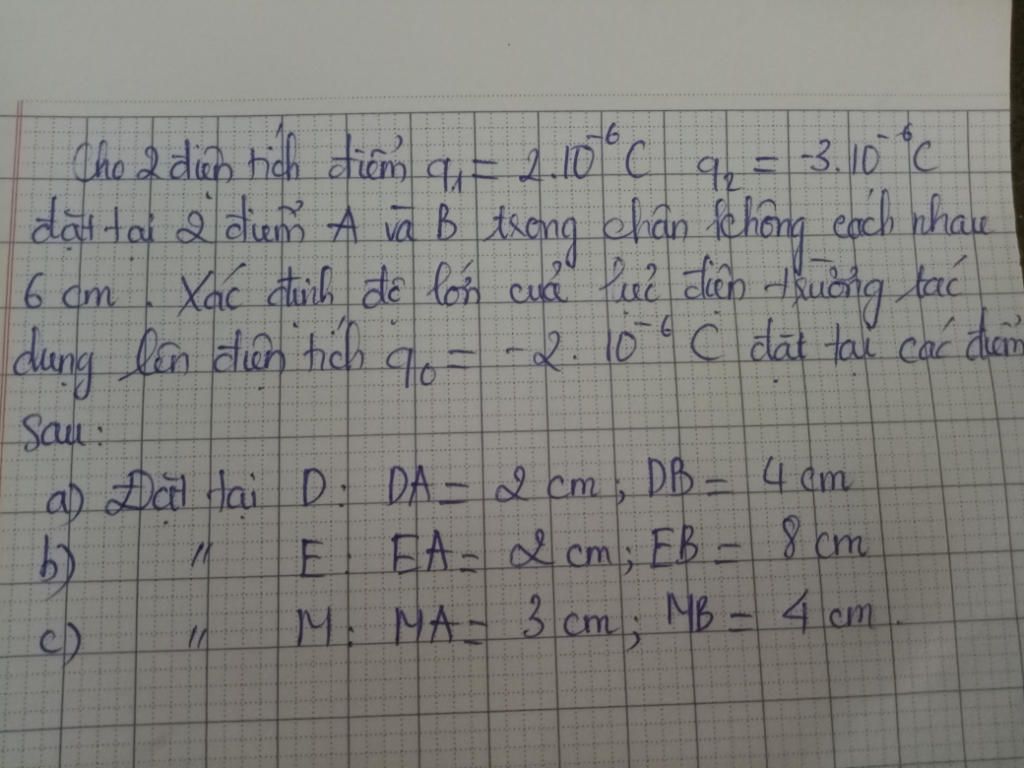 Cho 2 điện tích điểm q₁ = 2.10⁻⁶C q₂ = -3.10⁻⁶C
đặt tại 2 điểm A và B trong chân không cách nhau
6 cm. Xác định độ lớn của lực điện trường tác
dụng lên điện tích q₀ = -2.10⁻⁶ C đặt tại các điểm
sau:
a) Đặt tại D: DA = 2 cm; DB = 4 cm
b) " E: EA = 2 cm; EB = 8 cm
c) " M: MA = 3 cm; MB = 4 cm.